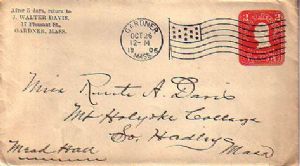 After 5 days, return to
J. WALTER DAVIS,
17 Pleasant St.,
GARDNER, MASS.
GARDNER
OCT 26
12-M
1906
MASS.
2 2
Miss Ruth A. Davis
Mt Holyoke College
So. Hadley
Mead Hall
Mass